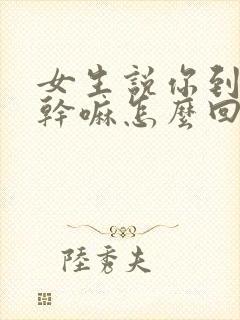 女生說你到
幹嘛怎麼回
陸秀夫